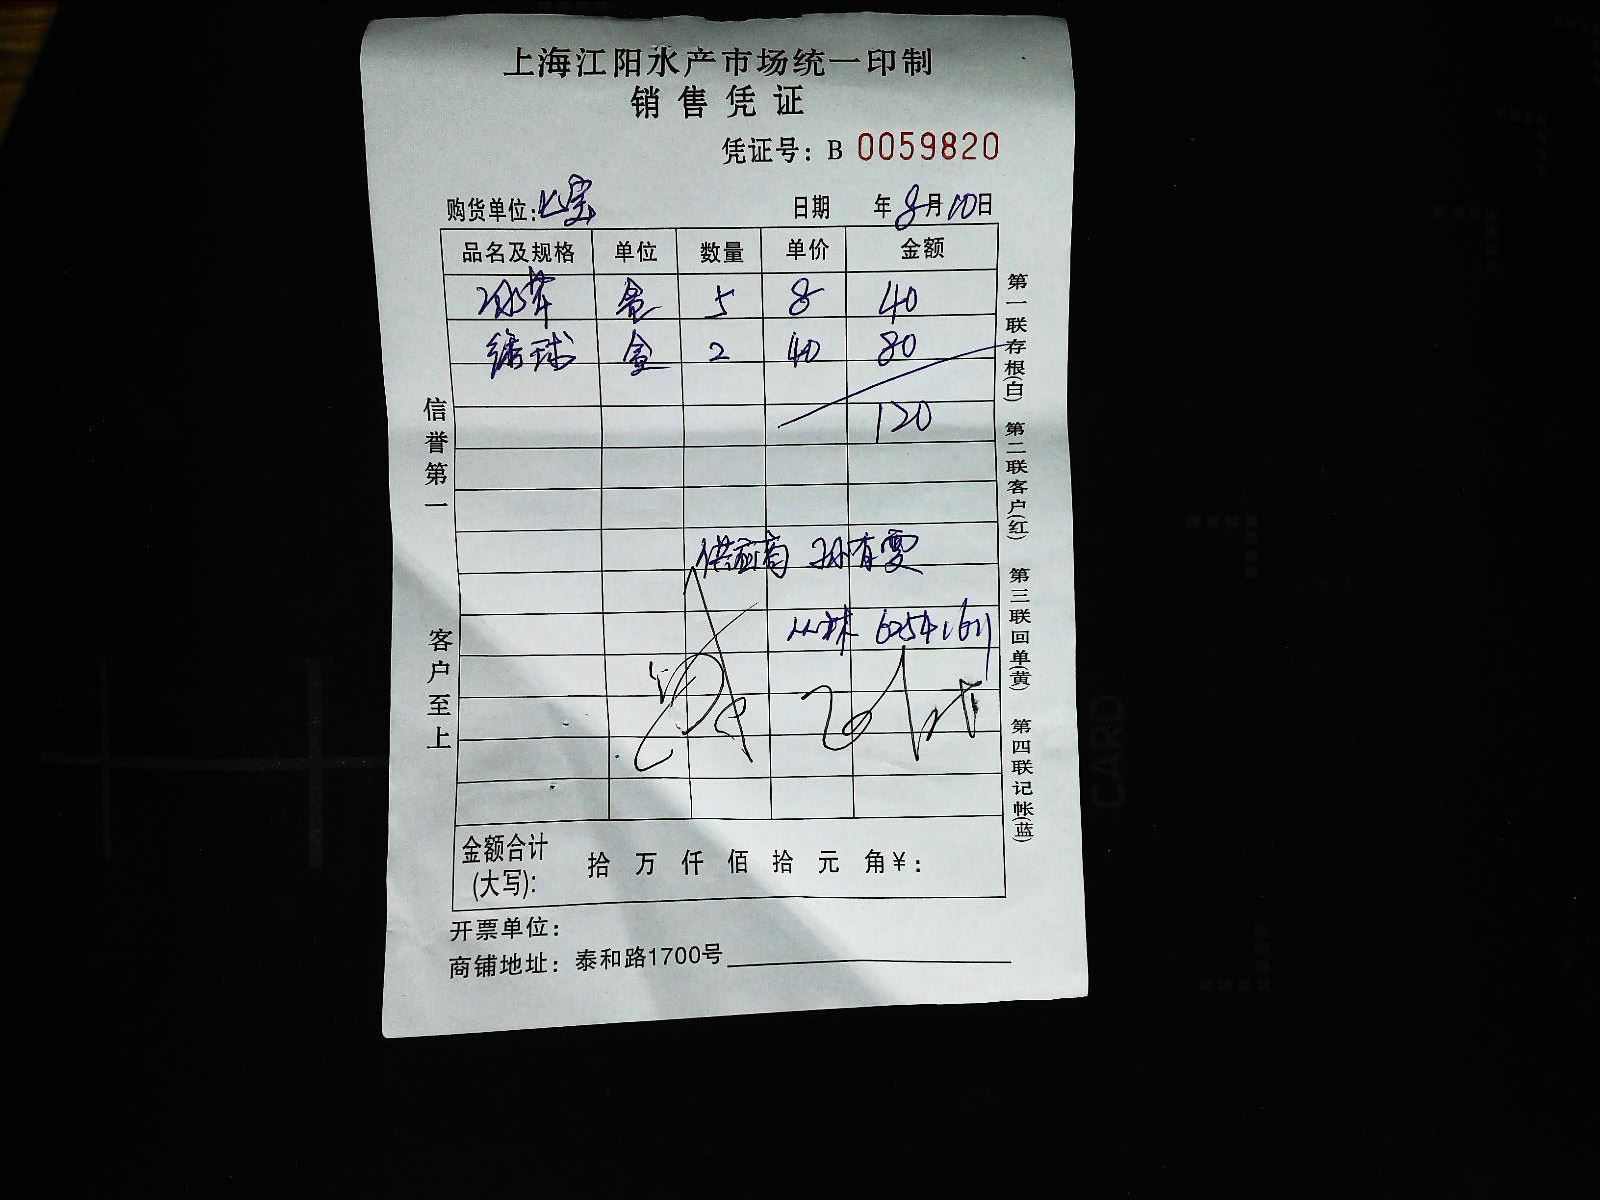 上海江阳水产市场统一印制
销售凭证
凭证号：B 0059820
购货单位： 日期 年8月10日
品名及规格 单位 数量 单价 金额
盒 5 8 40
绣球 盒 2 40 80
120
供应商 孙有雯
62541611
金额合计(大写)： 拾 万 仟 佰 拾 元 角 ¥：
开票单位：
商铺地址：泰和路1700号
信誉第一
客户至上
第一联存根(白) 第二联客户(红) 第三联回单(黄) 第四联记帐(蓝)
CARD